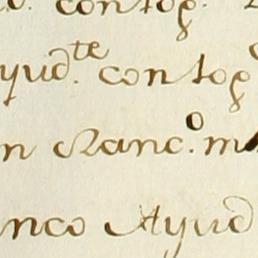 con tog.
yud.te con tog
n Ranc.o m
nco Ayud